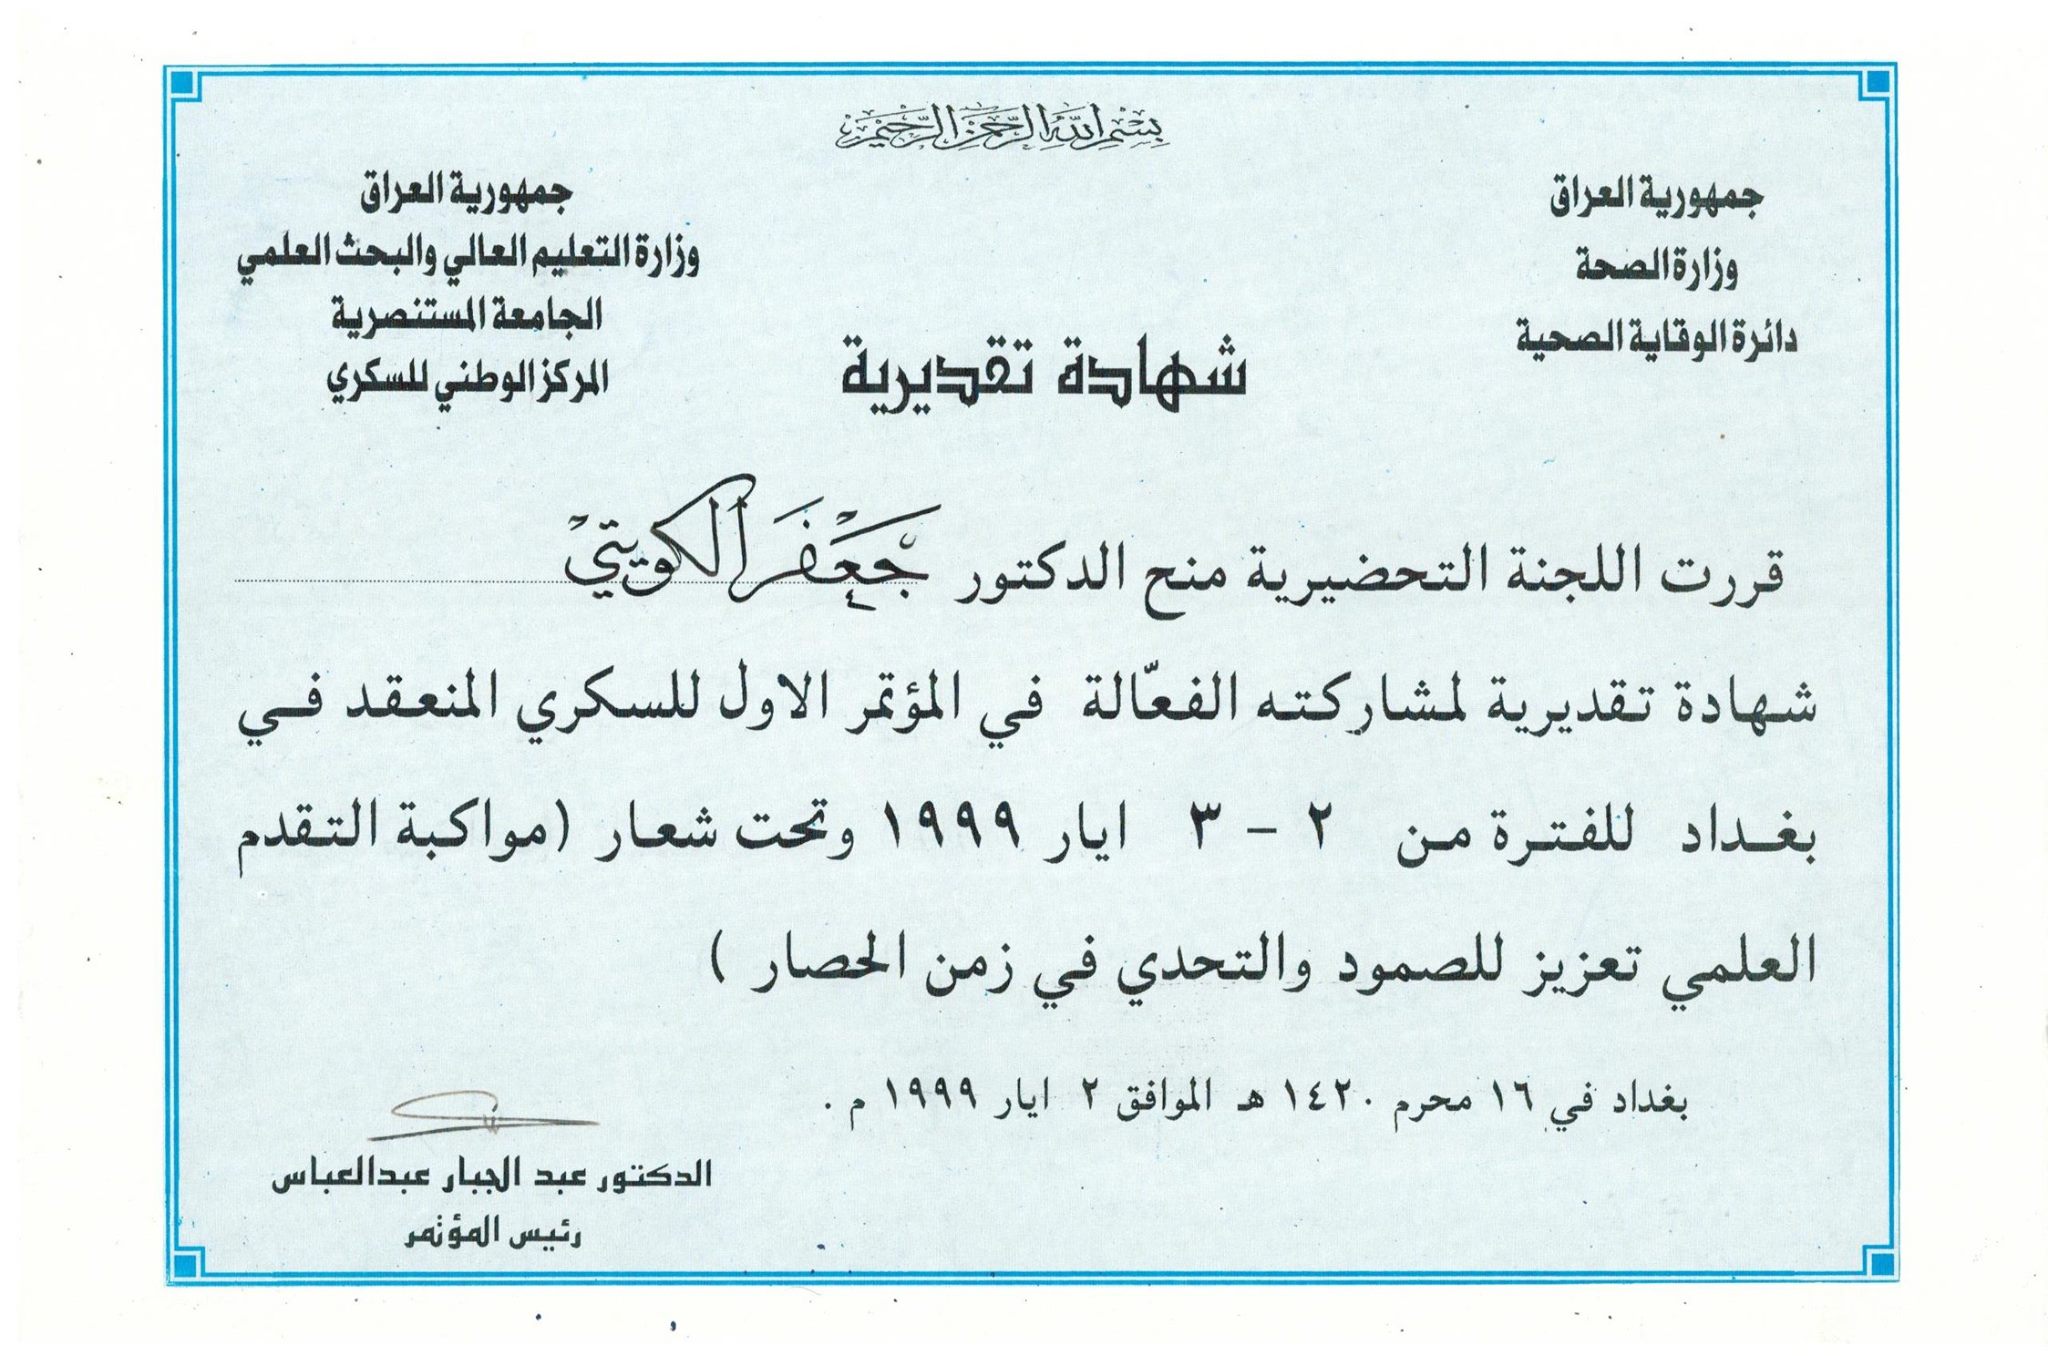 بسم الله الرحمن الرحيم
جمهورية العراق
وزارة الصحة
دائرة الوقاية الصحية
جمهورية العراق
وزارة التعليم العالي والبحث العلمي
الجامعة المستنصرية
المركز الوطني للسكري
شهادة تقديرية
قررت اللجنة التحضيرية منح الدكتور جعفر الكويتي
شهادة تقديرية لمشاركته الفعّالة في المؤتمر الاول للسكري المنعقد في
بغداد للفترة من ٢ - ٣ ايار ١٩٩٩ وتحت شعار (مواكبة التقدم
العلمي تعزيز للصمود والتحدي في زمن الحصار )
بغداد في ١٦ محرم ١٤٢٠ هـ الموافق ٢ ايار ١٩٩٩ م .
الدكتور عبد الجبار عبدالعباس
رئيس المؤتمر